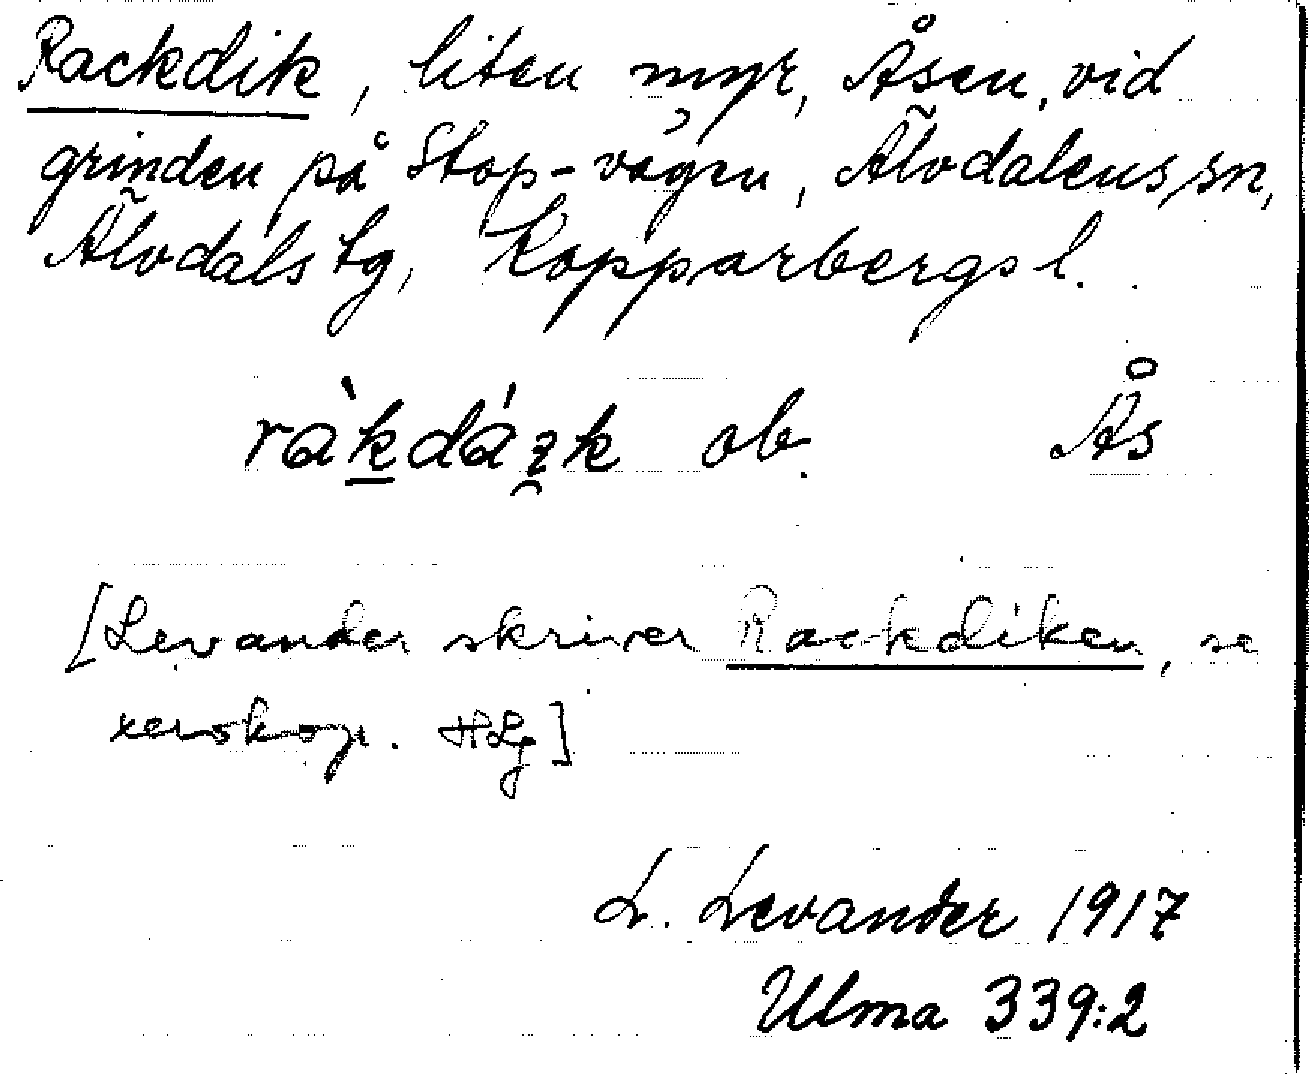 Rackdik, liten myr, Åsen, vid
grinden på Stop-vägen, Älvdalens sn,
Älvdals tg, Kopparbergs l.
ràkdáɪ̯k ob. Ås
[Levander skriver Rackdiken, se
xerokop. HLg]
L. Levander 1917
Ulma 339:2